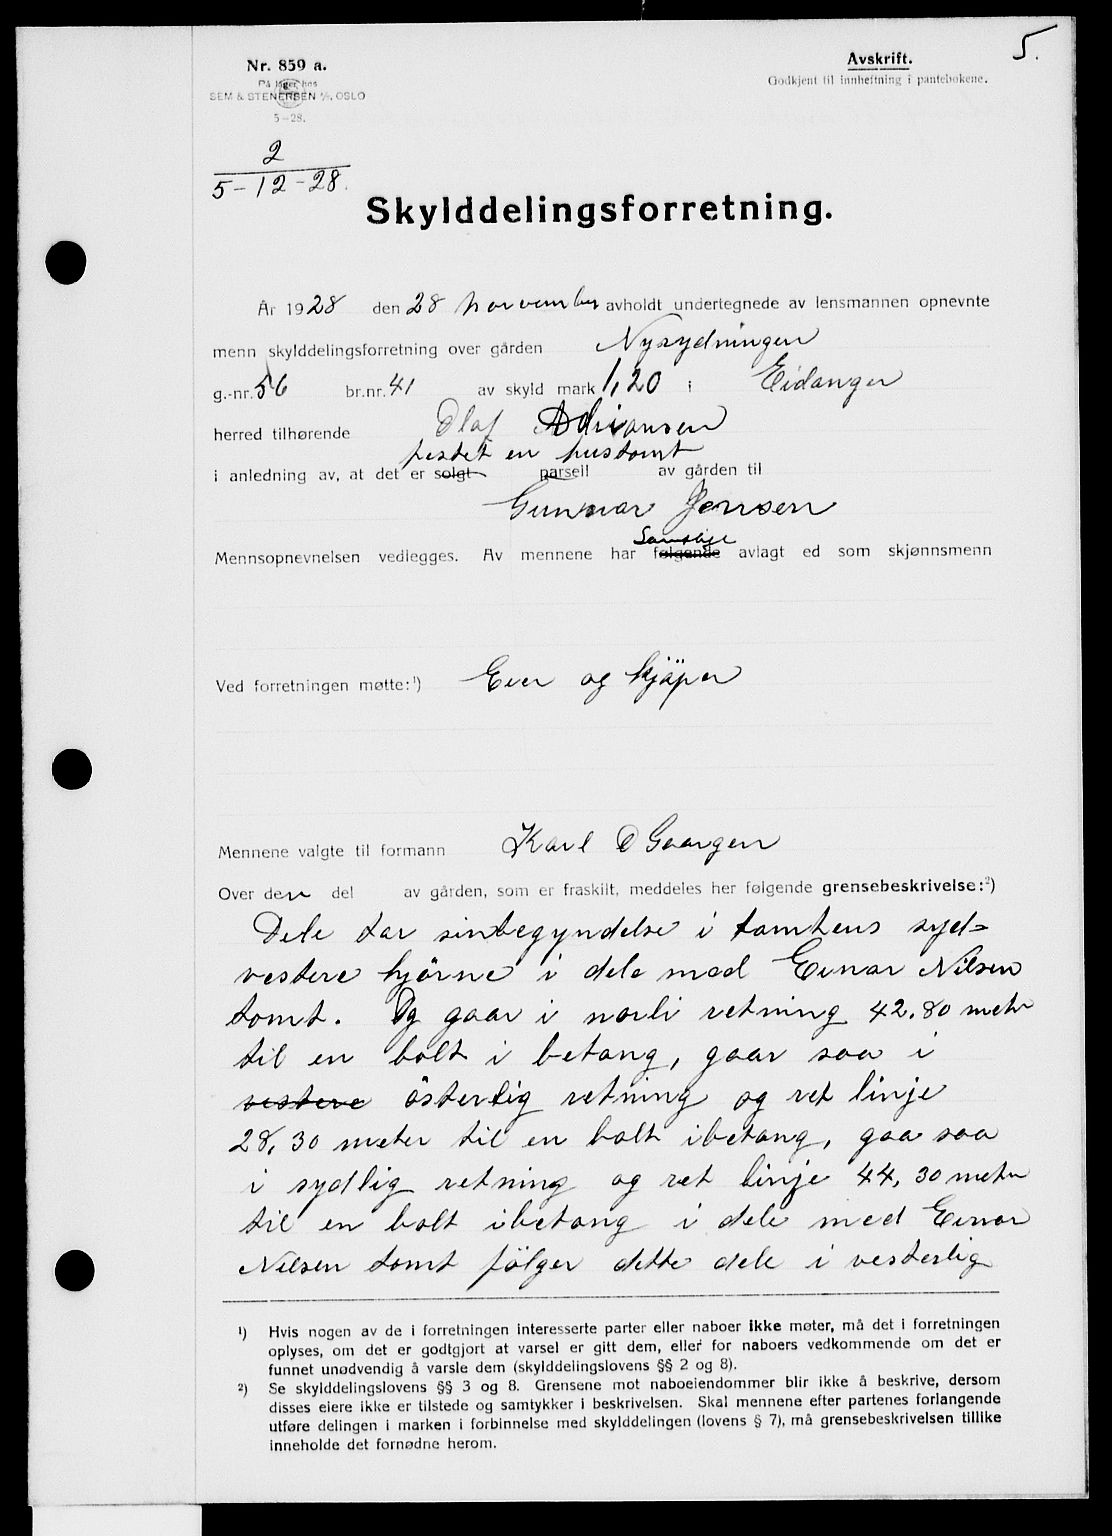 5.
Nr. 859 a.
På lager hos
SEM & STENERSEN A/S, OSLO
5-28.
Avskrift.
Godkjent til innheftning i pantebøkene.
2
5-12-28.
Skylddelingsforretning.
År 1928 den 28 november avholdt undertegnede av lensmannen opnevnte
menn skylddelingsforretning over gården Nyrydningen
g.-nr. 56 br.nr. 41 av skyld mark 1,20 i Eidanger
herred tilhørende Olaf Adriansen
festet en hustomt
i anledning av, at det er solgt parsell av gården til
Gunnar Jensen
Samtlige
Mennsopnevnelsen vedlegges. Av mennene har følgende avlagt ed som skjønnsmenn
Ved forretningen møtte:¹) Eier og kjöper
Mennene valgte til formann Karl O Gaargen
Over den del av gården, som er fraskilt, meddeles her følgende grensebeskrivelse:²)
Dele tar sinbegyndelse i tomtens syd=
vestere hjörne i dele med Einar Nilsen
tomt. Og gaar i norli retning 42.80 meter
til en bolt i betong, gaar saa i
vestere österlig retning og ret linje
28,30 meter til en bolt ibetong, gaa saa
i sydlig retning og ret linje 44,30 meter
til en bolt ibetong i dele med Einar
Nilsen tomt følger dette dele i vesterlig
¹) Hvis nogen av de i forretningen interesserte parter eller naboer ikke møter, må det i forretningen
oplyses, om det er godtgjort at varsel er gitt dem, eller for naboers vedkommende om det er
funnet unødvendig å varsle dem (skylddelingslovens §§ 2 og 8).
²) Se skylddelingslovens §§ 3 og 8. Grensene mot naboeiendommer blir ikke å beskrive, dersom
disses eiere ikke er tilstede og samtykker i beskrivelsen. Skal mennene efter partenes forlangende
utføre delingen i marken i forbinnelse med skylddelingen (lovens § 7), må grensebeskrivelsen tillike
inneholde det fornødne herom.